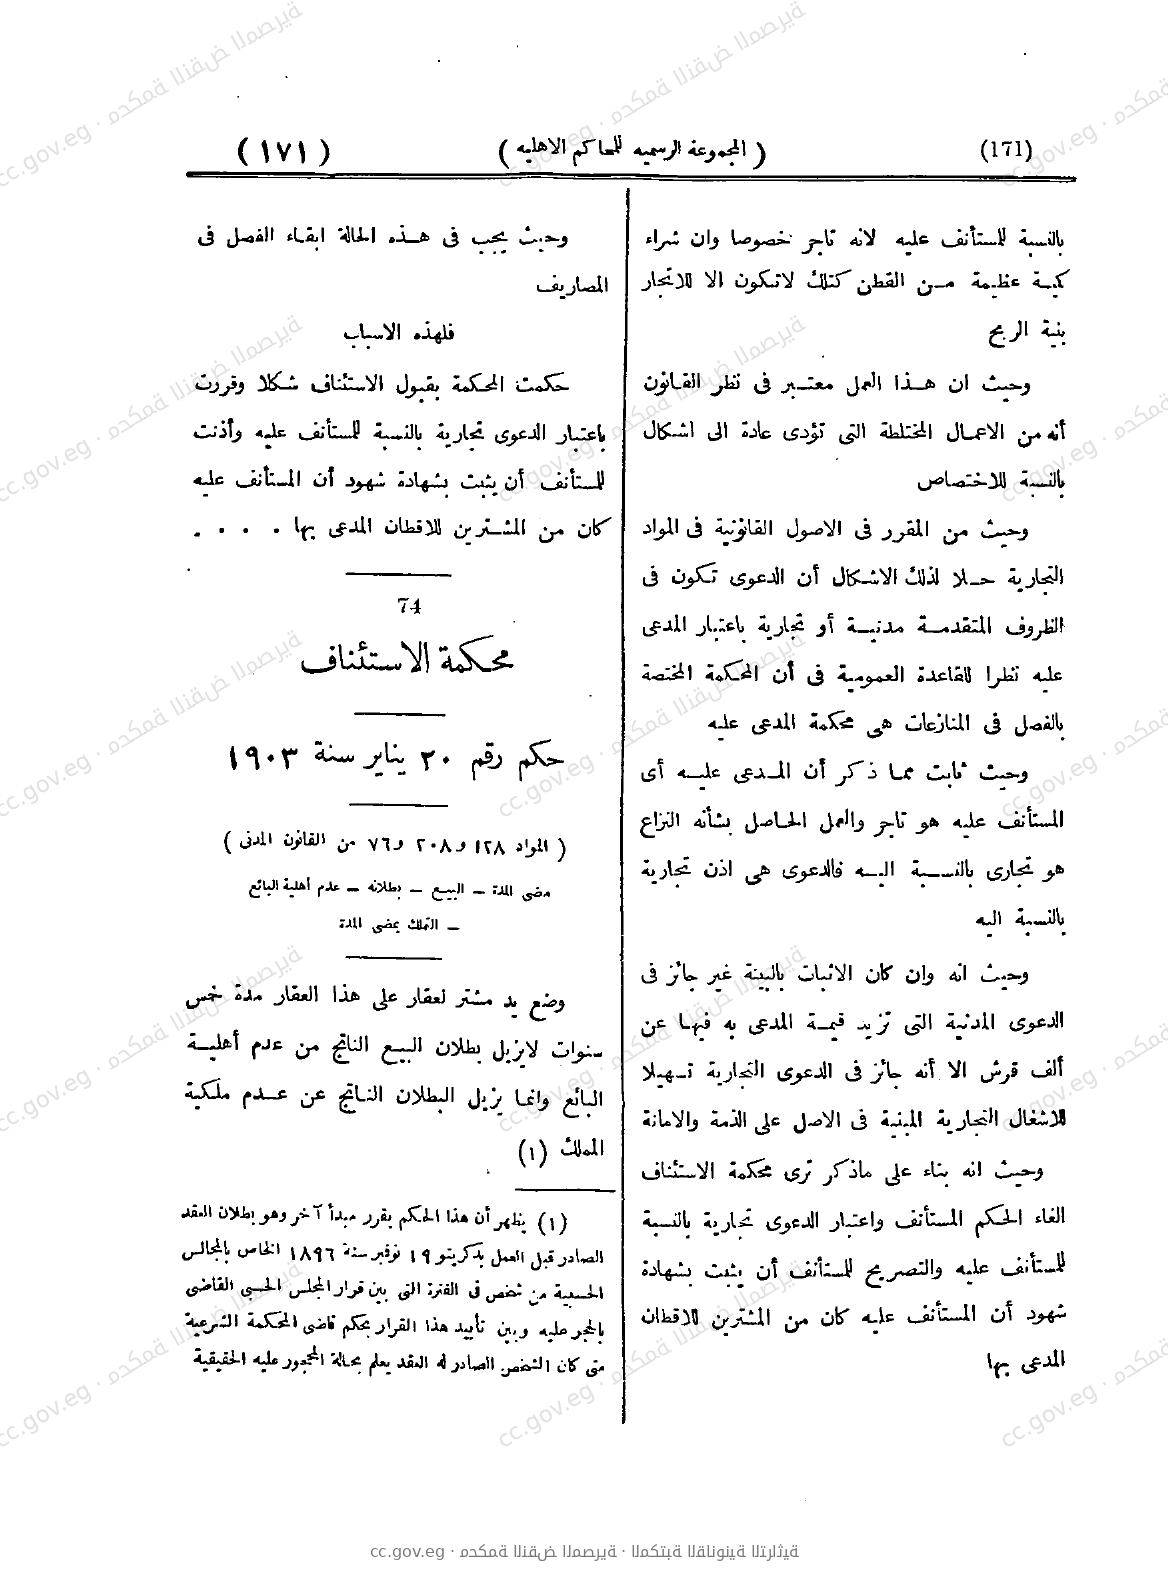 (171)
( المجموعة الرسميه للمحاكم الاهليه )
( ١٧١ )
بالنسبة للمستأنف عليه لانه تاجر خصوصا وان شراء
كمية عظيمة من القطن كتلك لا تكون الا للاتجار
بنية الربح
وحيث ان هذا العمل معتبر فى نظر القانون
أنه من الاعمال المختلطة التى تؤدى عادة الى اشكال
بالنسبة للاختصاص
وحيث من المقرر فى الاصول القانونية فى المواد
التجارية حلا لذلك الاشكال أن الدعوى تكون فى
الظروف المتقدمة مدنية أو تجارية باعتبار المدعى
عليه نظرا للقاعدة العمومية فى أن المحكمة المختصة
بالفصل فى المنازعات هى محكمة المدعى عليه
وحيث ثابت مما ذكر أن المدعى عليه أى
المستأنف عليه هو تاجر والعمل الحاصل بشأنه النزاع
هو تجارى بالنسبة اليه فالدعوى هى اذن تجارية
بالنسبة اليه
وحيث انه وان كان الاثبات بالبينة غير جائز فى
الدعوى المدنية التى تزيد قيمة المدعى به فيها عن
ألف قرش الا أنه جائز فى الدعوى التجارية تسهيلا
للاشغال التجارية المبنية فى الاصل على الذمة والامانة
وحيث انه بناء على ماذكر ترى محكمة الاستئناف
الغاء الحكم المستأنف واعتبار الدعوى تجارية بالنسبة
للمستأنف عليه والتصريح للمستأنف أن يثبت بشهادة
شهود أن المستأنف عليه كان من المشترين للاقطان
المدعى بها
وحيث يجب فى هذه الحالة ابقاء الفصل فى
المصاريف
فلهذه الاسباب
حكمت المحكمة بقبول الاستئناف شكلا وقررت
باعتبار الدعوى تجارية بالنسبة للمستأنف عليه وأذنت
للمستأنف أن يثبت بشهادة شهود أن المستأنف عليه
كان من المشترين للاقطان المدعى بها . . . .
74
محكمة الاستئناف
حكم رقم ٢٠ يناير سنة ١٩٠٣
( المواد ١٢٨ و ٢٠٨ و ٧٦ من القانون المدنى )
مضى المدة – البيع – بطلانه – عدم أهلية البائع
– التملك بمضى المدة
وضع يد مشتر لعقار على هذا العقار مدة خمس
سنوات لايزيل بطلان البيع الناتج من عدم أهلية
البائع وانما يزيل البطلان الناتج عن عدم ملكية
المملك (١)
(١) يظهر أن هذا الحكم يقرر مبدأ آخر وهو بطلان العقد
الصادر قبل العمل بدكريتو ١٩ نوفمبر سنة ١٨٩٦ الخاص بالمجالس
الحسبية من شخص فى الفترة التى بين قرار المجلس الحسبى القاضى
بالحجر عليه وبين تأييد هذا القرار بحكم قاضى المحكمة الشرعية
متى كان الشخص الصادر له العقد يعلم بحالة المحجور عليه الحقيقية
cc.gov.eg · محكمة النقض المصرية · المكتبة القانونية التراثية